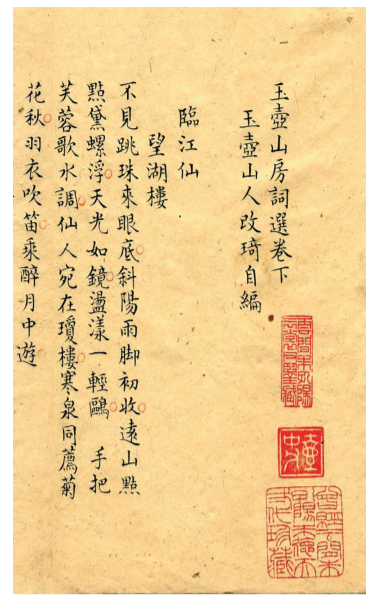 玉壺山房詞選卷下
玉壺山人改琦自編
臨江仙
望湖樓
不見跳珠來眼底斜陽雨脚初收遠山點
點黛螺浮天光如鏡盪漾一輕鷗　手把
芙蓉歌水調仙人宛在瓊樓寒泉同薦菊
花秋羽衣吹笛乘醉月中遊